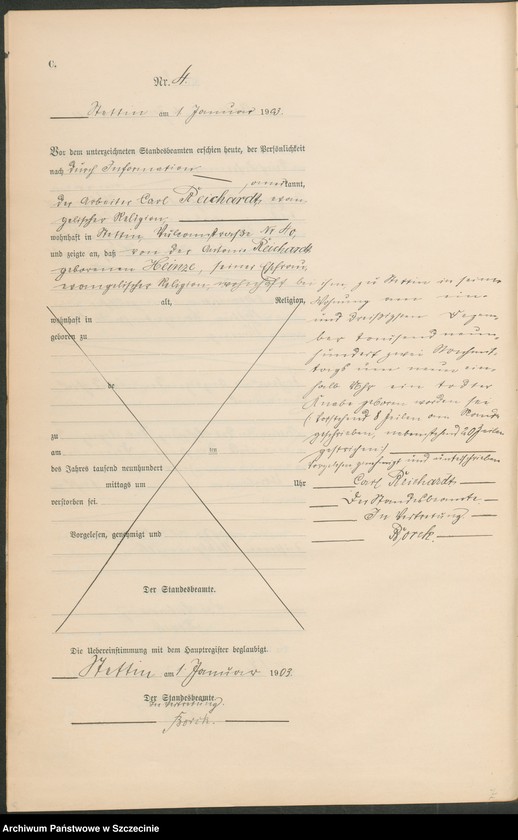 C.
Nr. 4.
Stettin am 1 Januar 1903.
Vor dem unterzeichneten Standesbeamten erschien heute, der Persönlichkeit
nach durch Information
anerkannt,
der Arbeiter Carl Reichardt, evan-
gelischer Religion,
wohnhaft in Stettin Vulcanstraße № 40,
und zeigte an, daß von der Antonie Reichardt
geborenen Heinze, seiner Ehefrau,
evangelischer Religion, wohnhaft bei
alt, Religion,
wohnhaft in
geboren zu
de
zu
am im
des Jahres tausend neunhundert
mittags um Uhr
verstorben sei.
Vorgelesen, genehmigt und
Der Standesbeamte.
ihm, zu Stettin in seiner
Wohnung am ein
und dreißigsten Dezem-
ber tausend neun-
hundert zwei Vormit-
tags um neun ein
halb Uhr ein todter
Knabe geboren worden sei
(Vorstehend 8 Zeilen am Rande
geschrieben, nebenstehend Zeilen
gestrichen)
Vorgelesen genehmigt und unterschrieben
Carl Reichardt,
Der Standesbeamte
In Vertretung
Borck.
Die Uebereinstimmung mit dem Hauptregister beglaubigt.
Stettin am 1 Januar 1903.
Der Standesbeamte.
In Vertretung.
Borck.
Archiwum Państwowe w Szczecinie